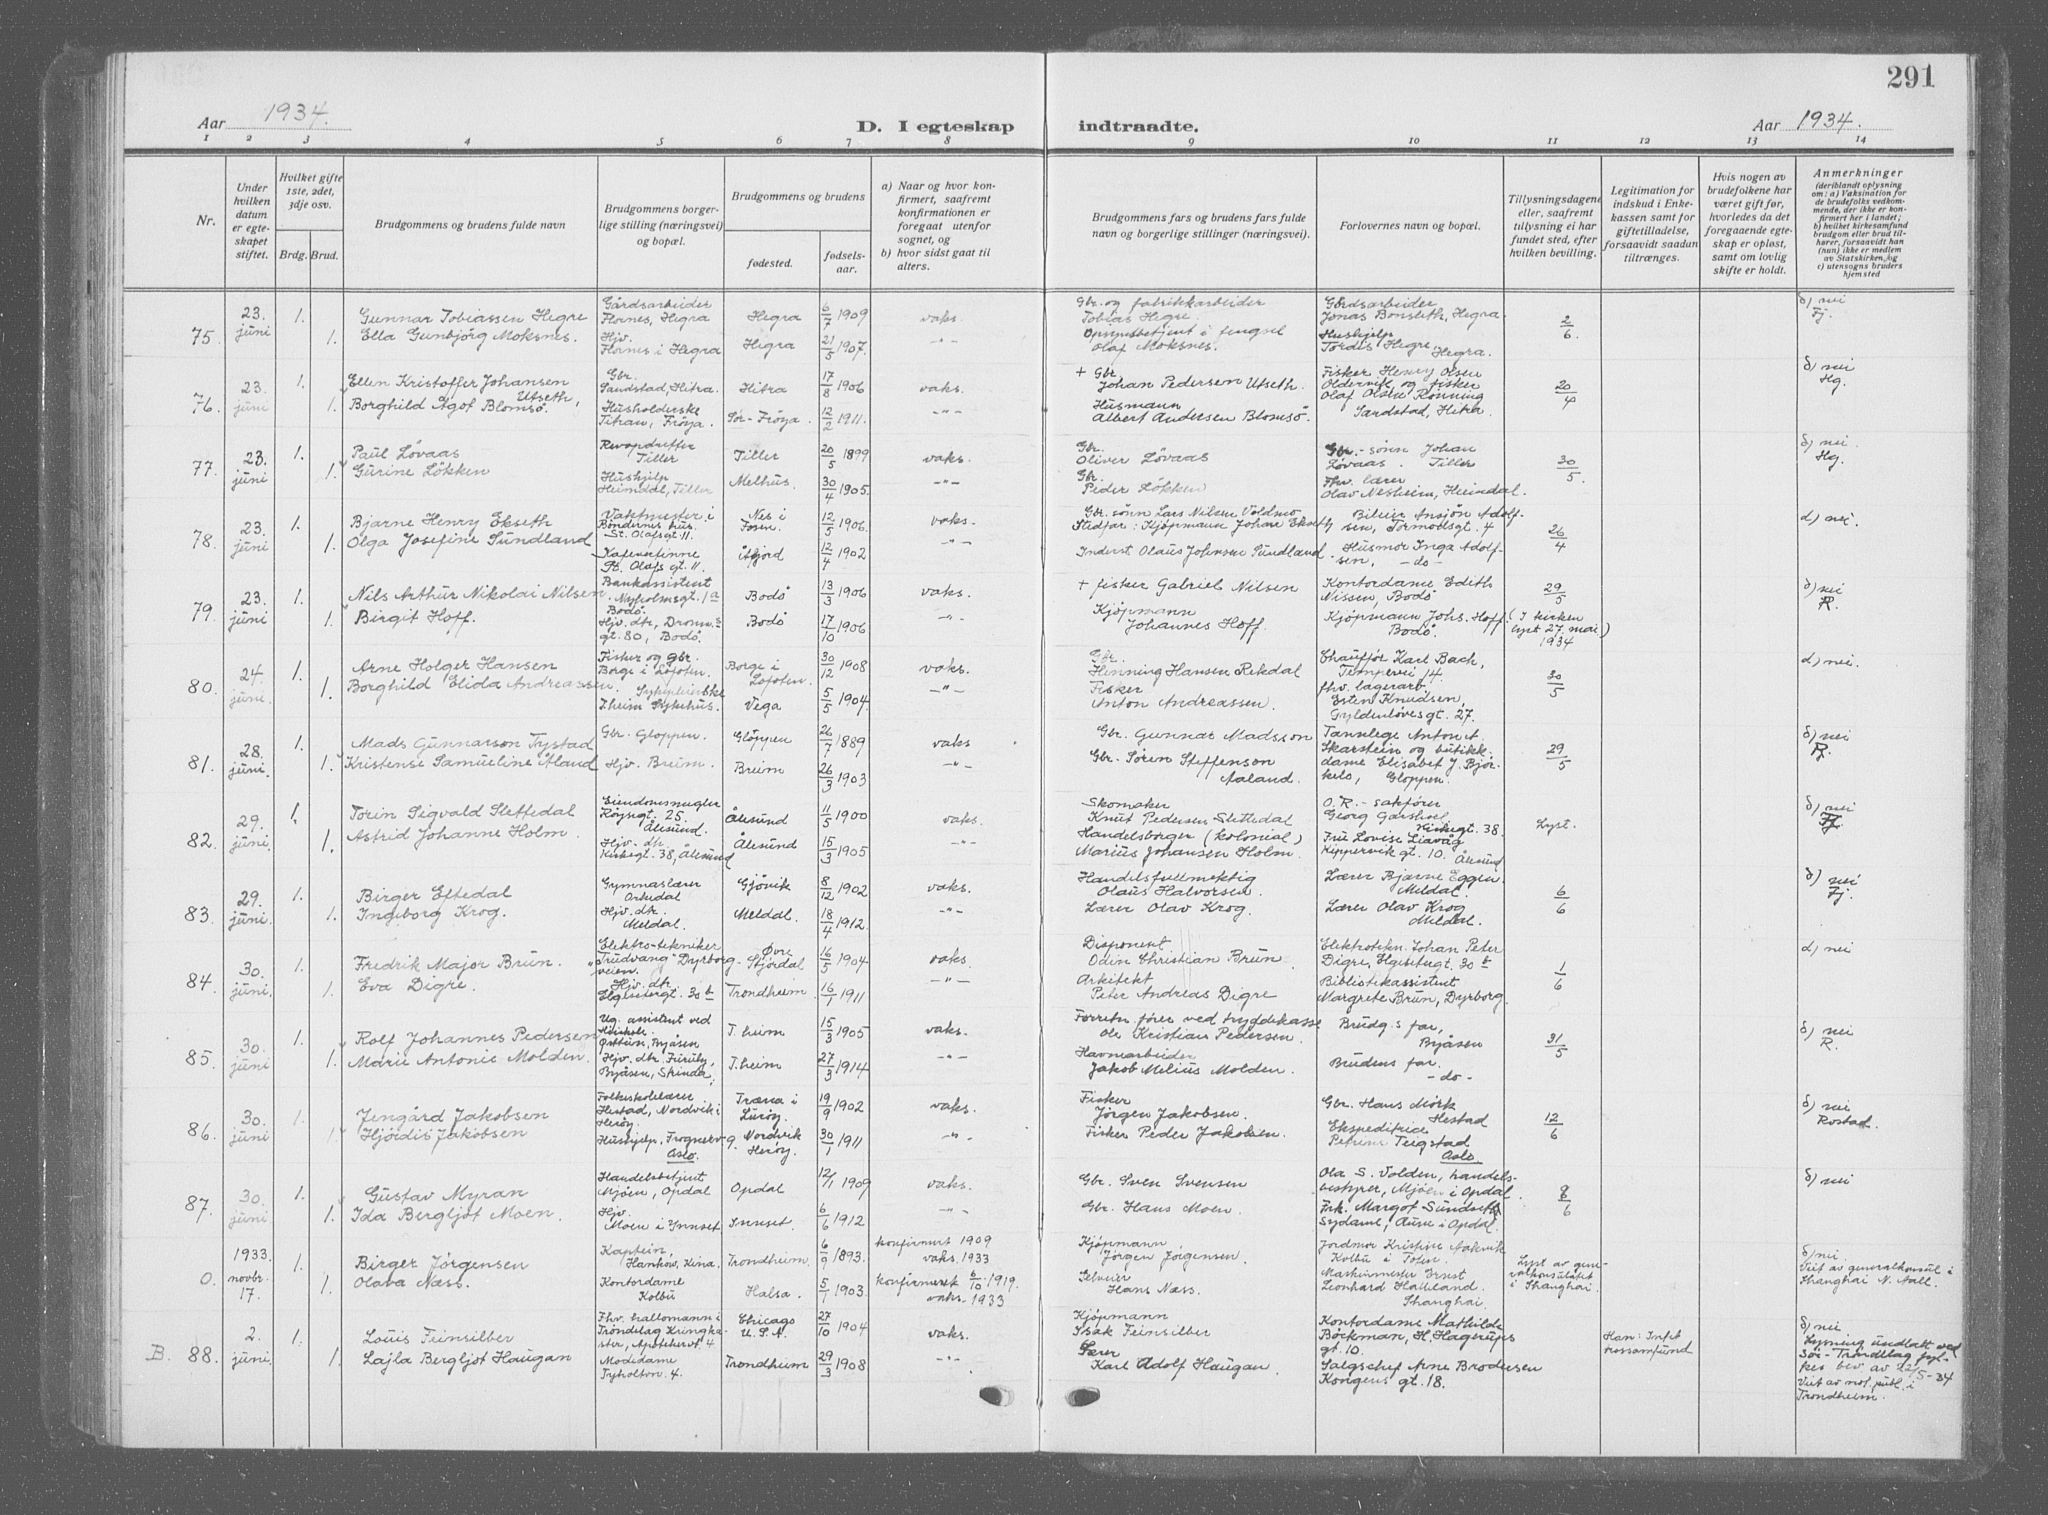 291
Aar 1934.
D. I egteskap indtraadte.
Aar 1934.
1 2 3 4 5 6 7 8 9 10 11 12 13 14
Nr.
Under hvilken datum er egteskapet stiftet.
Hvilket gifte 1ste, 2det, 3dje osv.
Brdg. Brud.
Brudgommens og brudens fulde navn
Brudgommens borgerlige stilling (næringsvei) og bopæl.
Brudgommens og brudens
fødested.
fødselsaar.
a) Naar og hvor konfirmert, saafremt konfirmationen er foregaat utenfor sognet, og
b) hvor sidst gaat til alters.
Brudgommens fars og brudens fars fulde navn og borgerlige stillinger (næringsvei).
Forlovernes navn og bopæl.
Tillysningsdagene eller, saafremt tillysning ei har fundet sted, efter hvilken bevilling.
Legitimation for indskud i Enkekassen samt for giftetilladelse, forsaavidt saadan tiltrænges.
Hvis nogen av brudefolkene har været gift før, hvorledes da det foregaaende egteskap er opløst, samt om lovlig skifte er holdt.
Anmerkninger
(deriblandt oplysning om: a) Vaksination for de brudefolks vedkommende, der ikke er konfirmert her i landet; b) hvilket kirkesamfund brudgom eller brud tilhører, forsaavidt han (hun) ikke er medlem av Statskirken, og c) utensogns bruders hjemsted
75. 23. juni 1. Gunnar Tobiassen Hegre Gårdsarbeider Flornes, Hegra Hegra 6/7 1909 vaks. Gbr. og fabrikkarbeider Tobias Hegre. Gårdsarbeider Jonas Bonsleth, Hegra 2/6. b) nei Fj.
1. Ella Gunbjörg Moksnes. Hjv. Flornes i Hegra Hegra 21/5 1907. -"- Opsynsbetjent i fengsel Olaf Moksnes. Hushjelp Tordis Hegre, Hegra.
76. 23. juni 1. Ellen Kristoffer Johansen Utseth, Gbr. Sandstad, Hitra. Hitra 17/8 1906 vaks. + Gbr. Johan Pedersen Utseth. Fisker Henry Olsen Oldervik og fisker 20/4 b) nei Hg.
1. Borghild Ågot Blomsö. Husholderske Titran, Fröya. Sör-Fröya. 12/2 1911. -"- Husmann Albert Andersen Blomsö. Olaf Olsen Rönning Sandstad, Hitra.
77. 23. juni 1. Paul Lövaas Tiller Tiller 20/5 1899 vaks. Gbr. Oliver Lövaas Gbr.-sönn Johan Lövaas. Tiller 30/5. b) nei. Hg.
1. Gurine Lökken Hushjelp Heimdal, Tiller Melhus. 30/4 1905. -"- Gbr. Peder Lökken Fhv. lærer Olav Nesheim, Heimdal.
78. 23. juni 1. Bjarne Henry Ekseth Vaktmester i Böndernes hus. St. Olafsgt. 11. Nes i Fosen. 12/5 1906. vaks. Gbr. sönn Lars Nilsen Voldmo Stedfar: Kjöpmann Johan Ekseth Bileier Ansjön Adolfsen, Tormodsgt. 4 26/4 d) nei.
1. Olga Josefine Sundland Kafévertinne St. Olafs gt. 11. Åfjord 12/4 1902 -"- Inderst Olaus Johnsen Sundland. Husmor Inga Adolfsen, -do-
79. 23. juni 1. Nils Arthur Nikolai Nilsen Bankassistent Nyholmsgt. 1a Bodö. Bodö 13/3 1906 vaks. + fisker Gabriel Nilsen Kontordame Edith Nissen, Bodö 29/5 b) nei R.
1. Birgit Hoff. Hjv. dtr, Dronn.s gt. 80, Bodö. Bodö 17/10 1906 -"- Kjöpmann Johannes Hoff. Kjöpmann Johs. Hoff Bodö. (I kirken lyst 27. mai 1934)
80. 24. juni 1. Arne Holger Hansen Fisker og gbr. Borge i Lofoten. Borge i Lofoten. 30/12 1908 vaks. Gbr. Henning Hansen Rekdal Chaufför Karl Bach, Tempevei 14. 30/5 d) nei.
1. Borghild Elida Andreassen. Sykepleierske T.heim Sykehus. Vega 5/5 1904. -"- Fisker Anton Andreassen. fhv. lagerarb. Esten Knudsen, Gyldenlövesgt. 27.
81. 28. juni. 1. Mads Gunnarson Tystad Gbr. Gloppen. Glöppen 26/7 1889 vaks Gbr. Gunnar Madsson Tannlege Anton A. Skarstein og butikk- 29/5 b) nei R.
1. Kristense Samueline Åland Hjv. Breim. Breim 26/3 1903 -"- Gbr. Sören Steffenson Aaland. dame Elisabet J. Björkelo, Gloppen.
82. 29. juni. 1. Torin Sigvald Slettedal Eiendomsmegler Röysgt. 25. Ålesund. Ålesund 11/5 1900 vaks. Skomaker Knut Pedersen Slettedal O.R.-sakförer Georg Garshol Kirkegt. 38. Lyst. b) nei Fj.
1. Astrid Johanne Holm. Hjv. dtr. Kirkegt. 38, Ålesund Ålesund 15/3 1905 -"- Handelsborger (kolonial) Marius Johansen Holm. Fru Lovise Liavåg Kippervik gt. 10. Ålesund
83. 29. juni. 1. Birger Eftedal Gymnaslærer Orkedal Gjövik 8/12 1902 vaks. Handelsfullmektig Olaus Halvorsen. Lærer Bjarne Eggen Meldal. 6/6 b) nei Fj.
1. Ingeborg Krog. Hjv. dtr. Meldal. Meldal. 18/4 1912. -"- Lærer Olav Krog. Lærer Olav Krog Meldal.
84. 30. juni. 1. Fredrik Major Brun. Elektro-tekniker "Trudvang" Dyrborgveien. Övre Stjördal 16/5 1904 vaks. Disponent Odin Christian Brun. Elektrotekn. Johan Peter Digre, Elgesetergt. 30 b 1/6 d) nei
1. Eva Digre. Hjv. dtr. Elgesetergt. 30 b Trondheim. 16/1 1911 -"- Arkitekt Peter Andreas Digre Bibliotekassistent Margrete Brun, Dyrborg.
85 30. juni 1. Rolf Johannes Pedersen Ug. assistent ved Höiskole. Byåsen T.heim 15/3 1905 vaks. Forretn. förer ved trygdekasse Ole Kristian Pedersen. Brudg.s far, Byåsen 31/5 b) nei R.
1. Marie Antonie Molden. Hjv. dtr. Byåsen, Strinda. T.heim 27/3 1914 -"- Havnarbeider Jakob Melius Molden. Brudens far. -do-
86. 30. juni 1. Jengård Jakobsen Folkeskolelærer Hestad, Nordvik i Heröy. Træna i Luröy. 19/9 1902 vaks. Fisker Jörgen Jakobsen. Gbr. Hans Mörk Hestad 12/6 b) nei Rostad.
1. Hjördis Jakobsen Hushjelp, Frognerv. 9. Oslo. Nordvik Heröy. 30/1 1911 -"- Fisker Peder Jakobsen. Ekspeditrice Petrine Teigstad Oslo
87. 30. juni 1. Gustav Myran Handelsbetjent Mjöen, Opdal Opdal 12/1 1909 vaks. Gbr. Sven Svensen Ola S. Volden, handelsbestyrer, Mjöen i Opdal. 9/6 b) nei
1. Ida Bergljot Moen. Hjv. Moen i Innset Innset. 6/6 1912 -"- Gbr. Hans Moen. Frk. Margot Sundseth Sydame, Aune i Opdal.
0. 1933. novbr. 17. 1. Birger Jörgensen Kaptein, Hankow, Kina. Trondheim. 6/9 1893. konfirmert 1909 vaks. 1933 Kjöpmann Jörgen Jörgensen. Jordmor Kristine Aakvik Kolbu i Toten. Lyst av generalkonsulatet i Shanghai. b) nei. Viet av generalkonsul i Shanghai N. Aall.
1. Olava Næss. Kontordame Kolbu Halsa. 5/1 1903. konfirmeret 6/10 1919. vaks. 1933 Selveier Hans Næss. Maskinmester Ernst Leonhard Hatteland. Shanghai.
B. 88. 2. juni. 1. Louis Feinsilber Fhv. hallomann i Tröndelag Kringkaster, Apotekervt. 4 Chicago U.S.A. 27/10 1904 vaks. Kjöpmann Isak Feinsilber Kontordame Mathilde Böckman, H. Hagerups gt. 10. Han: Intet trossamfund b) nei. Lysning undlatt ved Sör-Tröndelag fylkes bev av 22/5-34
1. Lajla Bergljot Haugan Modedame Tyholtvn. 4. Trondheim 29/3 1908 -"- Lærer Karl Adolf Haugan. Salgschef Arne Brodersen Kongens gt. 18. Viet av not. publ. i Trondheim.